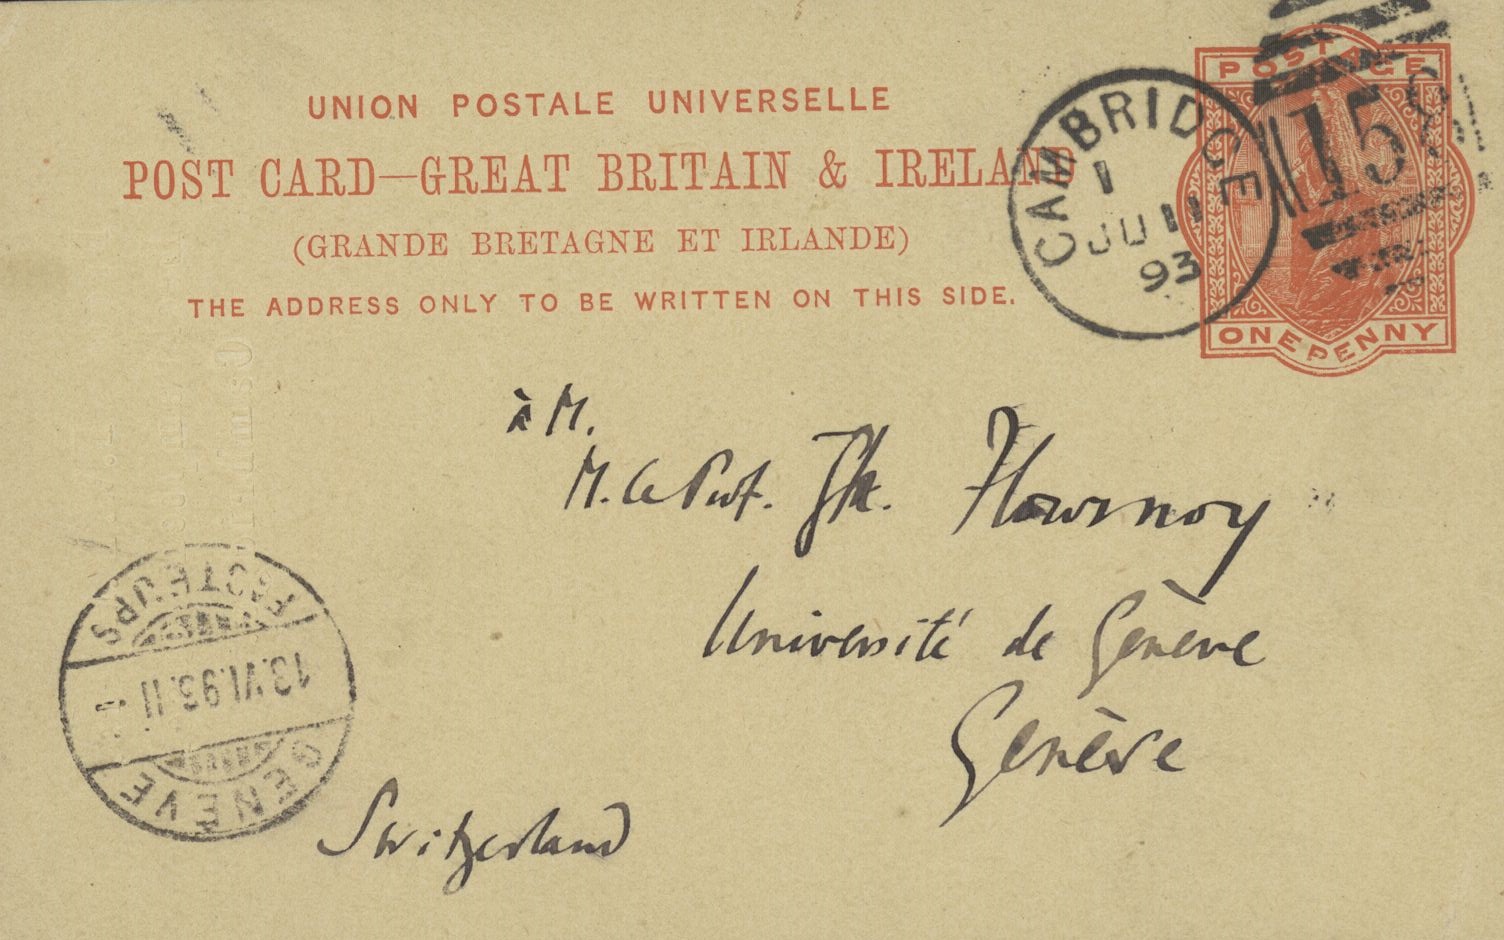 UNION POSTALE UNIVERSELLE
POST CARD—GREAT BRITAIN & IRELAND
(GRANDE BRETAGNE ET IRLANDE)
THE ADDRESS ONLY TO BE WRITTEN ON THIS SIDE.
POSTAGE
ONE PENNY
CAMBRIDGE
1
JU 11
93
158
à M.
M. le Prof. Th. Flournoy
Université de Genève
Genève
Switzerland
FACTEURS
13.VI.93.11
GENÈVE